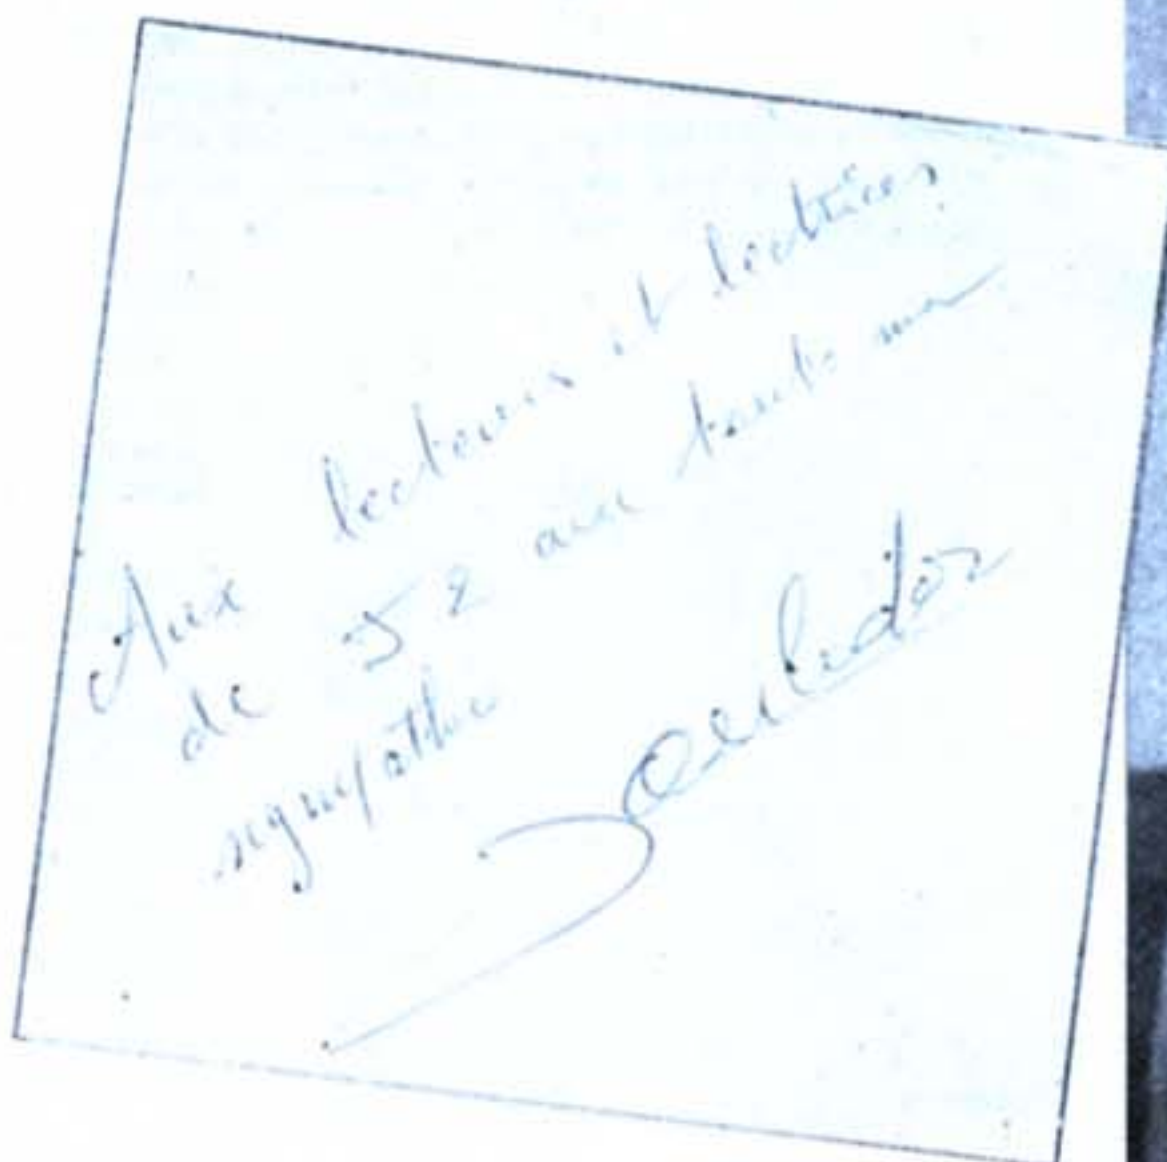 Aux lecteurs et lectrices
de J2 avec toute ma
sympathie